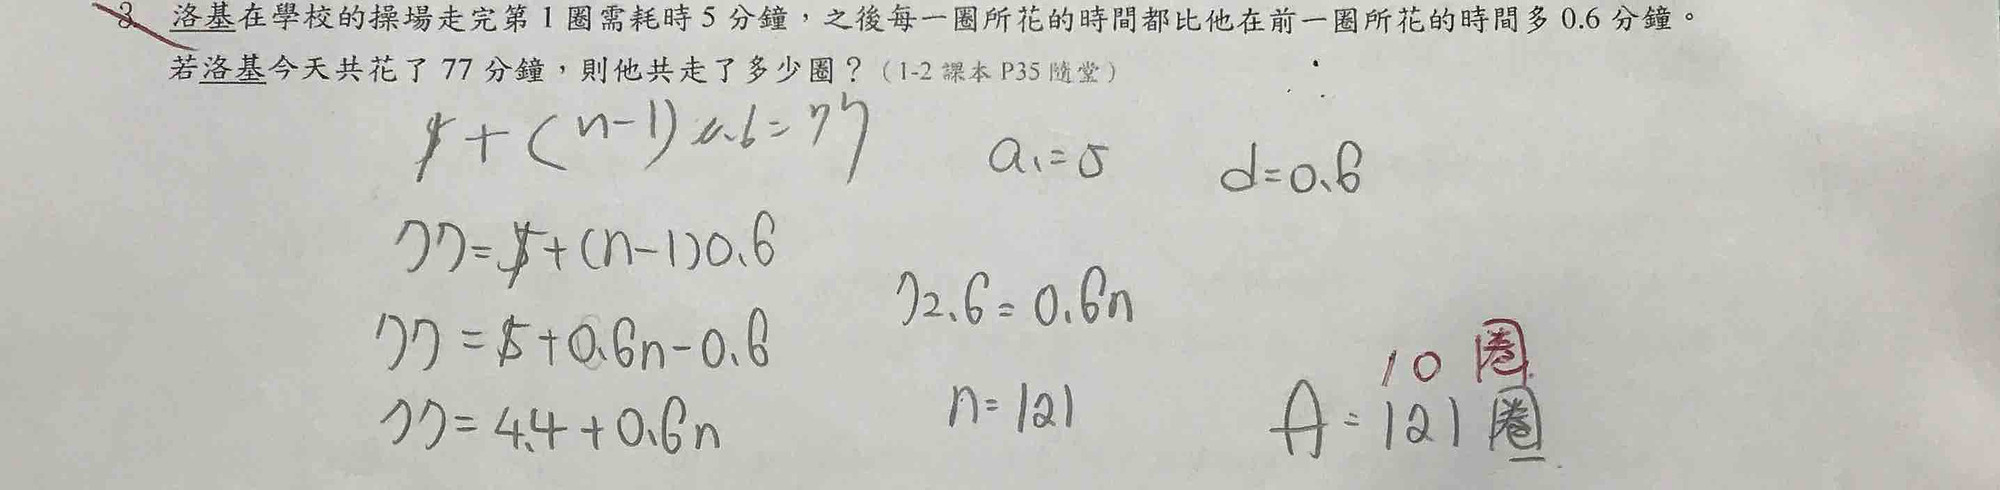 3. 洛基在學校的操場走完第 1 圈需耗時 5 分鐘，之後每一圈所花的時間都比他在前一圈所花的時間多 0.6 分鐘。
若洛基今天共花了 77 分鐘，則他共走了多少圈？（1-2 課本 P35 隨堂）
5+(n-1)0.6=77
a₁=5
d=0.6
77=5+(n-1)0.6
77=5+0.6n-0.6
77=4.4+0.6n
72.6=0.6n
n=121
10圈
A=121圈